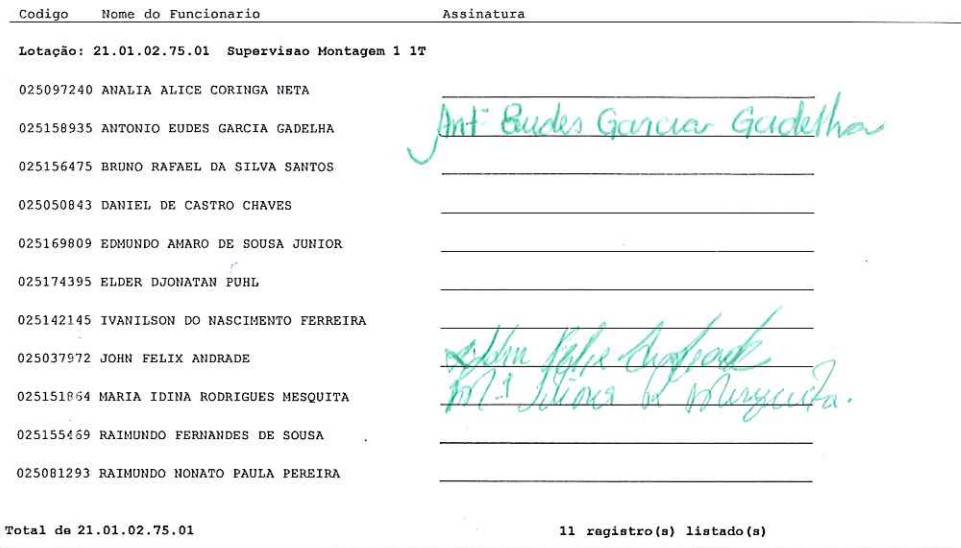 Codigo Nome do Funcionario Assinatura
Lotação: 21.01.02.75.01 Supervisao Montagem 1 1T
025097240 ANALIA ALICE CORINGA NETA
025158935 ANTONIO EUDES GARCIA GADELHA Antº Eudes Garcia Gadelha
025156475 BRUNO RAFAEL DA SILVA SANTOS
025050843 DANIEL DE CASTRO CHAVES
025169809 EDMUNDO AMARO DE SOUSA JUNIOR
025174395 ELDER DJONATAN PUHL
025142145 IVANILSON DO NASCIMENTO FERREIRA
025037972 JOHN FELIX ANDRADE John Felix Andrade
025151864 MARIA IDINA RODRIGUES MESQUITA Mª Idina R Mesquita.
025155469 RAIMUNDO FERNANDES DE SOUSA
025081293 RAIMUNDO NONATO PAULA PEREIRA
Total de 21.01.02.75.01 11 registro(s) listado(s)